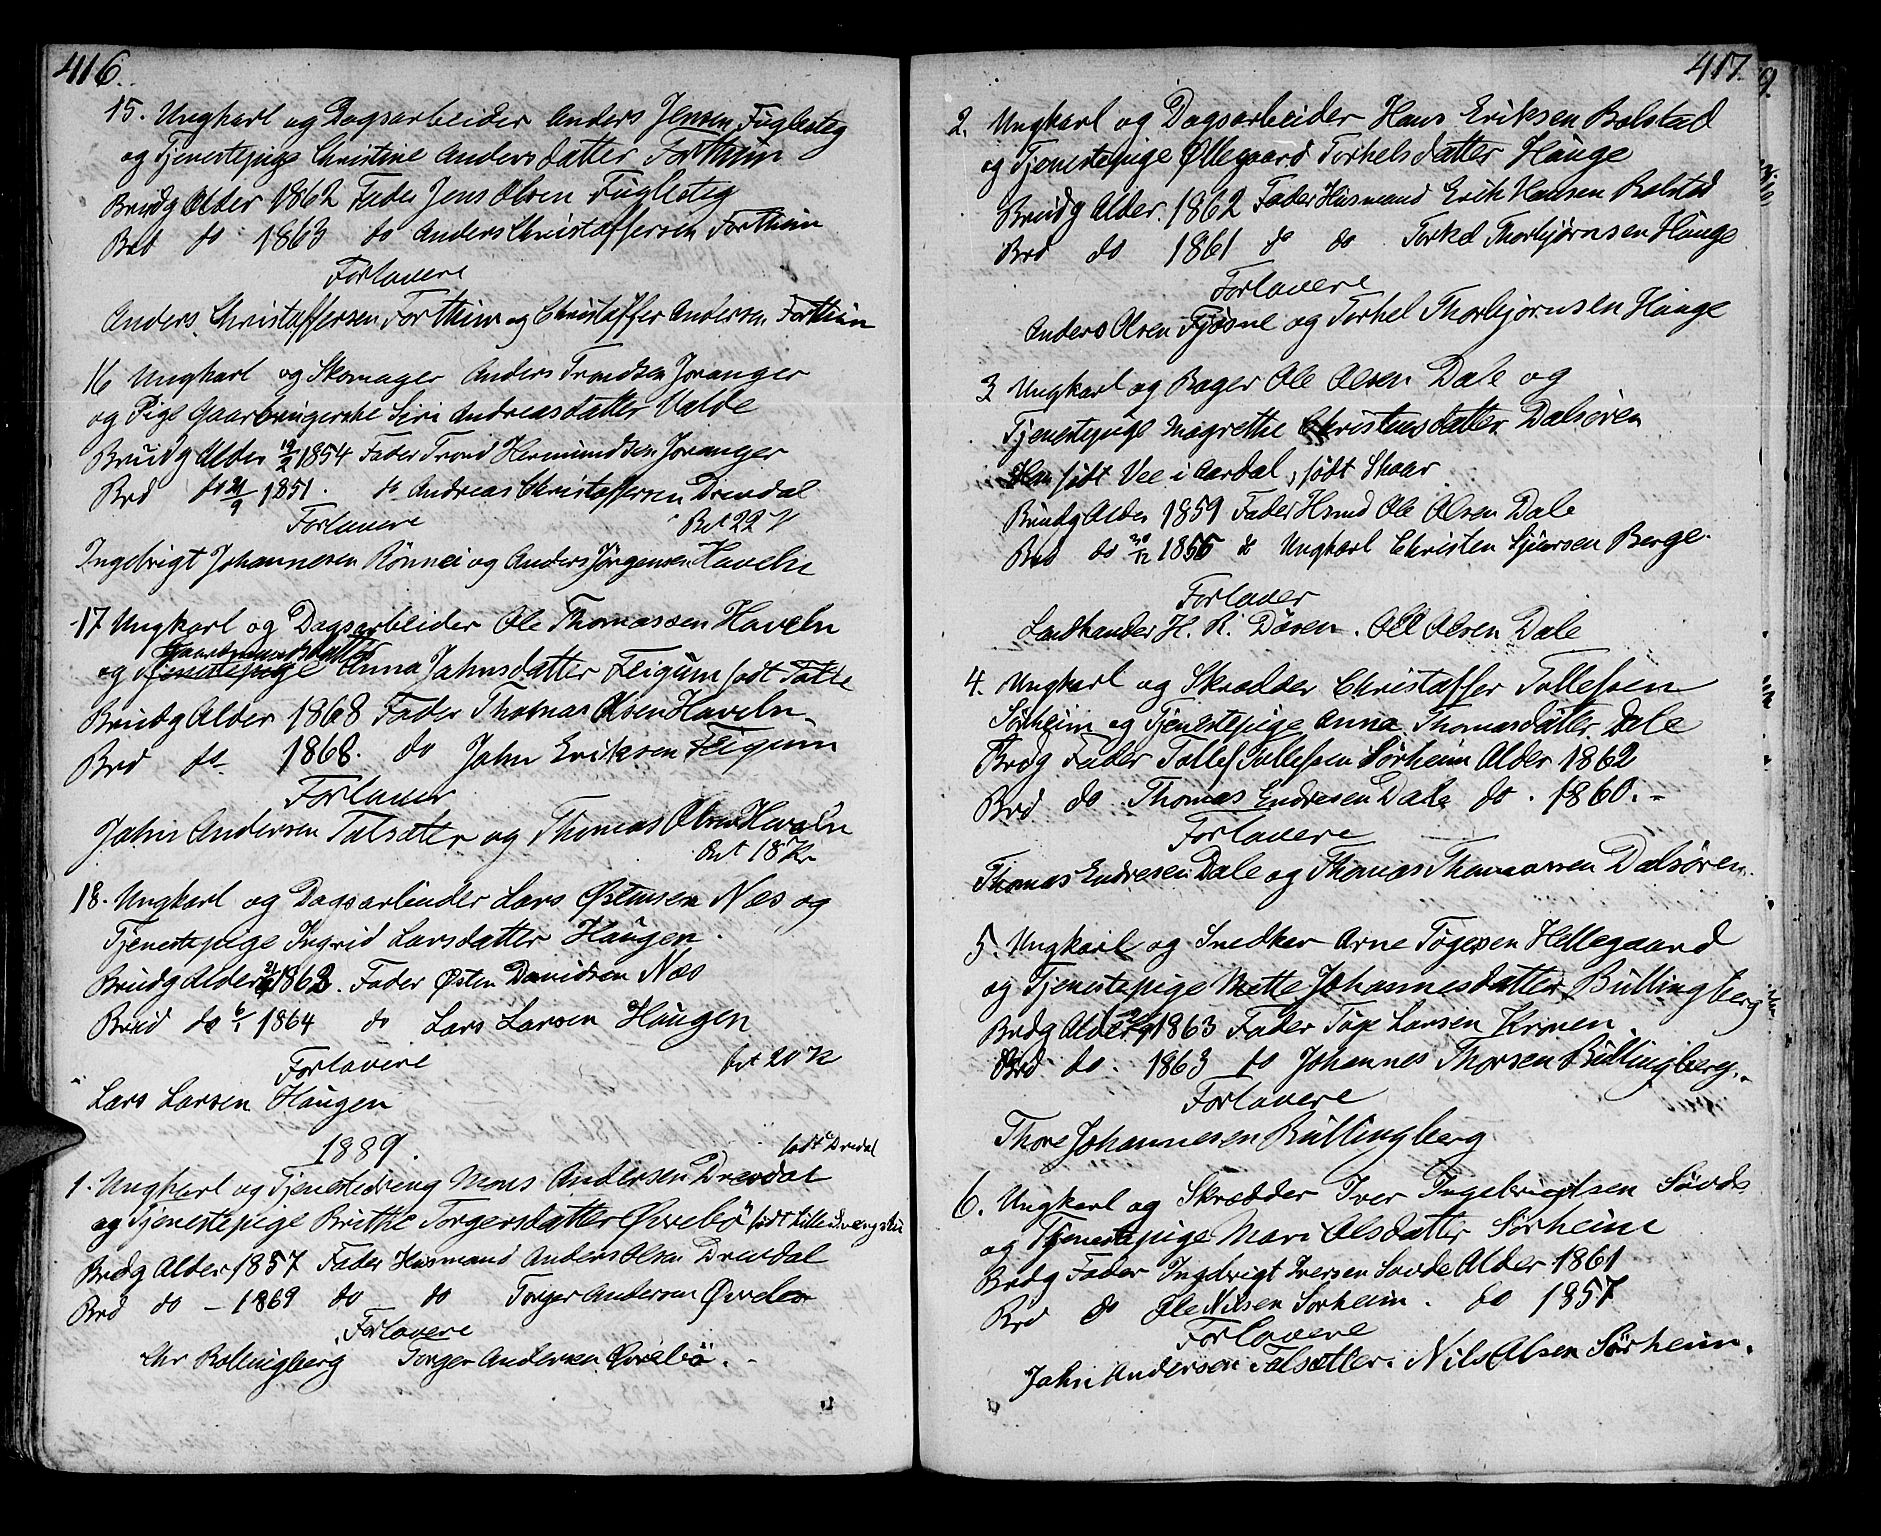 416.
15. Ungkarl og Dagsarbeider Anders Jensen Fuglesteg
og Tjenestepige Christine Andersdatter Forthun
Brudg Alder 1862 Fader Jens Olsen Fuglesteg
Brd do 1863 do Anders Christaffersen Forthun
Forlovere
Anders Christaffersen Forthun og Christaffer Andersen Forthun
16 Ungkarl og Skomager Anders Trondsen Joranger
og Pige Gaarbrugerske Siri Andreasdatter Valde
Brudg Alder 19/2 1854 Fader Trond Hermundsen Joranger
Brd do 21/9 1851. do Andreas Christaffersen Drevdal
Forlovere Bet 22 K
Ingebrigt Johannesen Rönnei og Anders Jörgensen Haveln
17 Ungkarl og Dagsarbeider Ole Thomassen Haveln
og Tjenestepige Anna Jahnsdatter Fleigum født Tatte
Brudg Alder 1868 Fader Thomas Olsen Haveln
Brd do 1868. do John Eriksen Fleigum
Forlover
Jahn Andersen Talsæter og Thomas Olsen Haveln
Bet 18 Kr
18. Ungkarl og Dagsarbeider Lars Østensen Næs og
Tjenestepige Ingrid Larsdatter Haugen.
Brudg Alder 1862. Fader Østen Davidsen Næs
Brud do 6/1 1864 do Lars Larsen Haugen
Forlovere bet 20 K
Lars Larsen Haugen
1889. født Drevdal
1. Ungkarl og Tjenestedreng Mons Andersen Drevdal
og Tjenestepige Brithe Torgersdatter Øvrebö født
Brdg Alder 1857 Fader Husmand Anders Olsen Drevdal
Brd do - 1869 do do Torger Andersen Øvrebø
Forlovere
Chr Bollingberg Torger Andersen Øvrebö.
417.
2. Ungkarl og Dagsarbeider Hans Eriksen Bolstad
og Tjenestepige Øllegaard Torkelsdatter Hauge
Brudg Alder. 1862 Fader Husmand Erik Hansen Bolstad
Brd do 1861 do do Torkel Thorbjørnsen Hauge
Forlovere
Anders Olsen Fjøsne og Torkel Thorbjørnsen Hauge
3 Ungkarl og Bager Ole Olsen Dale og
Tjenestepige Magrethe Christensdatter Dalsøren
Han født Vee i Aardal, født Skaar
Brudg Alder 1859 Fader Hsmd Ole Olsen Dale
Brd do 30/12 1866 do Ungkarl Christen Sjursen Berge.
Forlover
Landhander H. R. Døsen. Ole Olsen Dale
4. Ungkarl og Skrædder Christaffer Tollefsen
Sørheim og Tjenestepige Anna Thomasdatter Dale
Brdg Fader Tollef Tollefsen Sørheim Alder 1862
Brd do Thomas Endresen Dale do. 1860. -
Forlovere
Thomas Endresen Dale og Thomas Thomassen Dalsøren.
5. Ungkarl og Snedker Arne Tøgesen Hellegaard
og Tjenestepige Mette Johannesdatter Bullingberg
Brdg Alder 1863 Fader Tøge Larsen Kronen
Brd do. 1863 do Johannes Thorsen Bullingberg.
Forlovere
Thore Johannesen Bullingberg
6. Ungkarl og Skrædder Iver Ingebrigtsen Savde
og Tjenestepige Mari Olsdatter Sørheim
Brdg Fader Ingebrigt Iversen Savde Alder 1861
Brd do Ole Nilsen Sørheim. do 1857
Forlovere
Jahn Andersen Talsætter. Nils Olsen Sørheim.